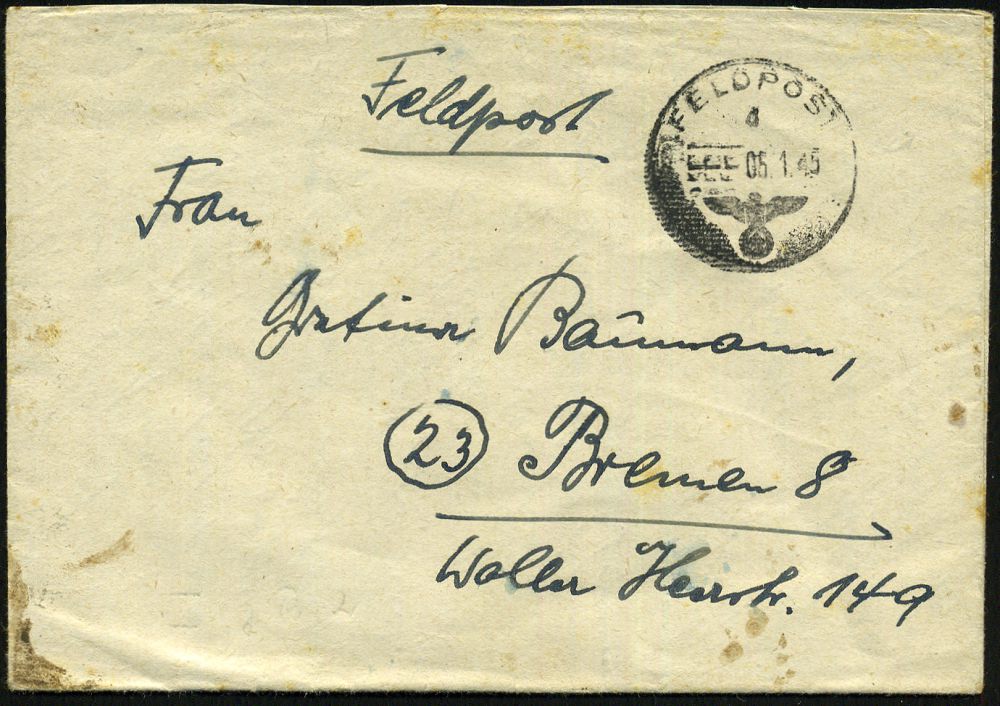 Feldpost
FELDPOST
05.1.45
Frau
Baumann,
23 Bremen 8
Waller Heerstr. 149